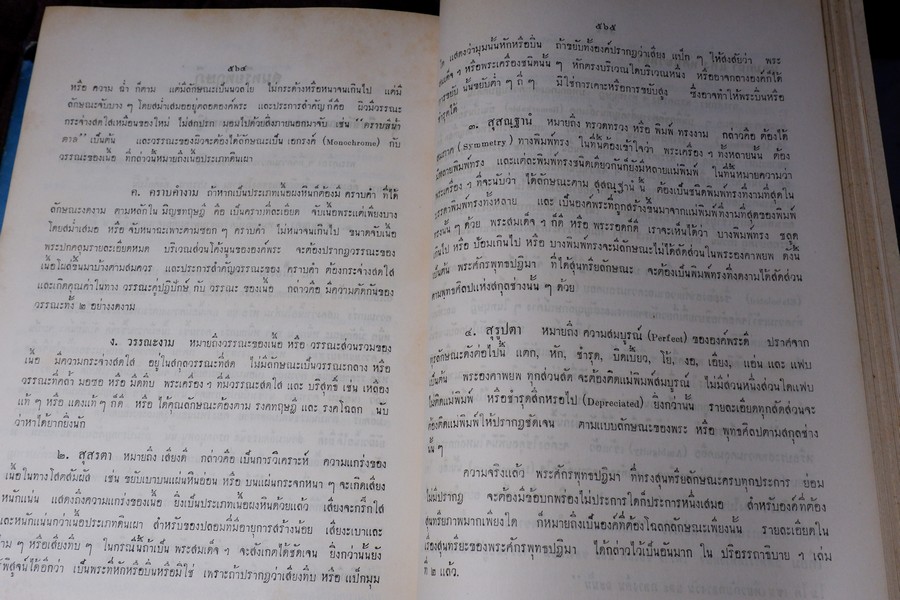 ๕๖๔
หรือ ความ ฉ่ำ ก็ตาม แต่มีลักษณะเป็นนวลใย ไม่กระด้างหรือหนาจนเกินไป แต่มี
ลักษณะจับบาง ๆ โดยสม่ำเสมออยู่ตลอดองค์พระ และประการสำคัญ ก็คือ ผิวมีวรรณะ
กระจ่างสดใสเหมือนของใหม่ ไม่สกปรก มอมไปด้วยสิ่งภายนอกมาจับ เช่น "คราบขี้น้ำ
ตาล" เป็นต้น และวรรณะของผิวจะต้องได้ลักษณะเป็น เอกรงค์ (Monochrome) กับ
วรรณะของเนื้อ ที่กล่าวนี้หมายถึงเนื้อประเภทดินเผา
ค. คราบคำงาม ถ้าหากเป็นประเภทเนื้อผงหินก็ต้องมี คราบคำ ที่ได้
ลักษณะงดงาม ตามหลักใน มัญชทฤษฎี คือ เป็นคราบที่ละเอียด จับเนื้อพระแต่เพียงบาง
โดยสม่ำเสมอ หรือ จับหนาเฉพาะตามซอก ๆ คราบคำ ไม่หนาจนเกินไป ขนาดจับเนื้อ
พระปกคลุมรายละเอียดหมด บริเวณส่วนโค้งนูนขององค์พระ จะต้องปรากฏวรรณะของ
เนื้อโผล่ขึ้นมาบ้างตามสมควร และประการสำคัญวรรณะของ คราบคำ ต้องกระจ่างสดใส
และเกิดคุณค่าในทาง วรรณะคู่ปฏิปักษ์ กับ วรรณะ ของเนื้อ กล่าวคือ มีความตัดกันของ
วรรณะทั้ง ๒ อย่างงดงาม
ง. วรรณะงาม หมายถึงวรรณะของเนื้อ หรือ วรรณะส่วนรวมของ
เนื้อ มีความกระจ่างสดใส อยู่ในสกุลวรรณะที่สด ไม่มีลักษณะเป็นวรรณะกลาง หรือ
วรรณะที่คล้ำ มอซอ หรือ มืดทึบ พระเครื่อง ๆ ที่มีวรรณะสดใส และ บริสุทธิ์ เช่น เหลือง
แท้ ๆ หรือ แดงแท้ ๆ ก็ดี หรือ ได้คุณลักษณะต้องตาม รงคทฤษฎี และ รงคโฉลก นับ
ว่าหาได้ยากยิ่งนัก
๒. สุสรตา หมายถึง เสียงดี กล่าวคือ เป็นการวิเคราะห์ ความแกร่งของ
เนื้อในทางโสตสัมผัส เช่น ขยับเบาบนแผ่นหินอ่อน หรือ บนแผ่นกระจกหนา ๆ จะเกิดเสียง
หนักแน่น แสดงถึงความแกร่งของเนื้อ ยิ่งเป็นประเภทเนื้อผงหินด้วยแล้ว เสียงจะกริกใส
และหนักแน่นกว่าเนื้อประเภทดินเผา สำหรับของปลอมที่มีอายุการสร้างน้อย เสียงจะเบาและ
ๆ หรือเสียงทึบ ๆ ในกรณีนี้ถ้าเป็น พระสมเด็จ ฯ จะสังเกตได้ชัดเจน ยิ่งกว่านั้นยัง
พิสูจน์ได้อีกว่า เป็นพระที่หักหรือบิ่นหรือมิใช่ เพราะถ้าปรากฏว่าเสียงทึบ หรือ แป๊กมุม
๕๖๕
แสดงว่ามุมนั้นหักหรือบิ่น ถ้าขยับทั้งองค์ปรากฏว่าเสียง แป๊ก ๆ ให้สงสัยว่า พระ
ฯ หรือพระเครื่องชนิดนั้น ๆ หักตรงบริเวณใดบริเวณหนึ่ง หรืออาจกลางองค์ก็ได้
การขยับ นั้นขยับต่ำ ๆ ถี่ ๆ มิใช่การเคาะหรือการขยับสูง ซึ่งอาจทำให้พระบิ่นหรือ
ชำรุดได้
๓. สุสณฐานํ หมายถึง ทรวดทรวง หรือ พิมพ์ ทรงงาม กล่าวคือ ต้องได้
(Symmetry) ทางพิมพ์ทรง ในที่นี้ต้องเข้าใจว่า พระเครื่อง ๆ ทั้งหลายนั้น ต้อง
มีหลายพิมพ์ทรง และแต่ละพิมพ์ทรงชนิดเดียวกันก็ยังมีหลายแม่พิมพ์ ในที่นี้หมายความว่า
พระเครื่อง ๆ ที่จะนับว่า ได้ลักษณะตาม สุสณฐานํ นี้ ต้องเป็นชนิดพิมพ์ทรงที่งามที่สุดใน
บรรดาพิมพ์ทรงทั้งหลาย และ เป็นองค์พระที่ถูกสร้างขึ้นมาจากแม่พิมพ์ที่งามที่สุดของพิมพ์
ทรงนั้น ๆ ด้วย พระสมเด็จ ฯ ก็ดี หรือ พระรอดก็ดี เราจะเห็นได้ว่า บางพิมพ์ทรง ชลูด
เกินไป หรือ ป้อมเกินไป หรือ บางพิมพ์ทรงจะมีลักษณะไม่ได้สัดส่วนในพระองคาพยพ ดังนี้
เป็นต้น พระศักรพุทธปฏิมา ที่ได้สุนทรียลักษณะ จะต้องเป็นพิมพ์ทรงที่งดงามได้สัดส่วน
ตามพุทธศิลปแห่งสกุลช่างนั้น ๆ ด้วย
๔. สุรูปตา หมายถึง ความสมบูรณ์ (Perfect) ขององค์พระดี ปราศจาก
ทุรลักษณะดังต่อไปนี้ แตก, หัก, ชำรุด, บิดเบี้ยว, โย้, งอ, เอียง, แอ่น และ แฟบ
เป็นต้น พระองคาพยพ ทุกส่วนสัด จะต้องติดแม่พิมพ์สมบูรณ์ ไม่มีส่วนหนึ่งส่วนใดแฟบ
ไม่ติดแม่พิมพ์ หรือชำรุดสึกหรอไป (Depreciated) ยิ่งกว่านั้น รายละเอียดทุกสัดส่วนจะ
ต้องติดแม่พิมพ์ให้ปรากฏชัดเจน ตามแบบลักษณะของพระ หรือ พุทธศิลปตามสกุลช่าง
นั้น ๆ
ความจริงแล้ว พระศักรพุทธปฏิมา ที่ทรงสุนทรียลักษณะครบทุกประการ ย่อม
ไม่มีปรากฏ จะต้องมีข้อบกพร่องไม่ประการใดก็ประการหนึ่งเสมอ สำหรับองค์ที่ต้อง
สุนทรียภาพมากเพียงใด ก็หมายถึงเป็นองค์ที่ต้องโฉลกลักษณะเพียงนั้น รายละเอียดใน
เรื่องสุนทรียะของพระศักรพุทธปฏิมา ได้กล่าวไว้เป็นอันมาก ใน ปริอรรถาธิบาย ฯ เล่ม
ที่ ๒ แล้ว.